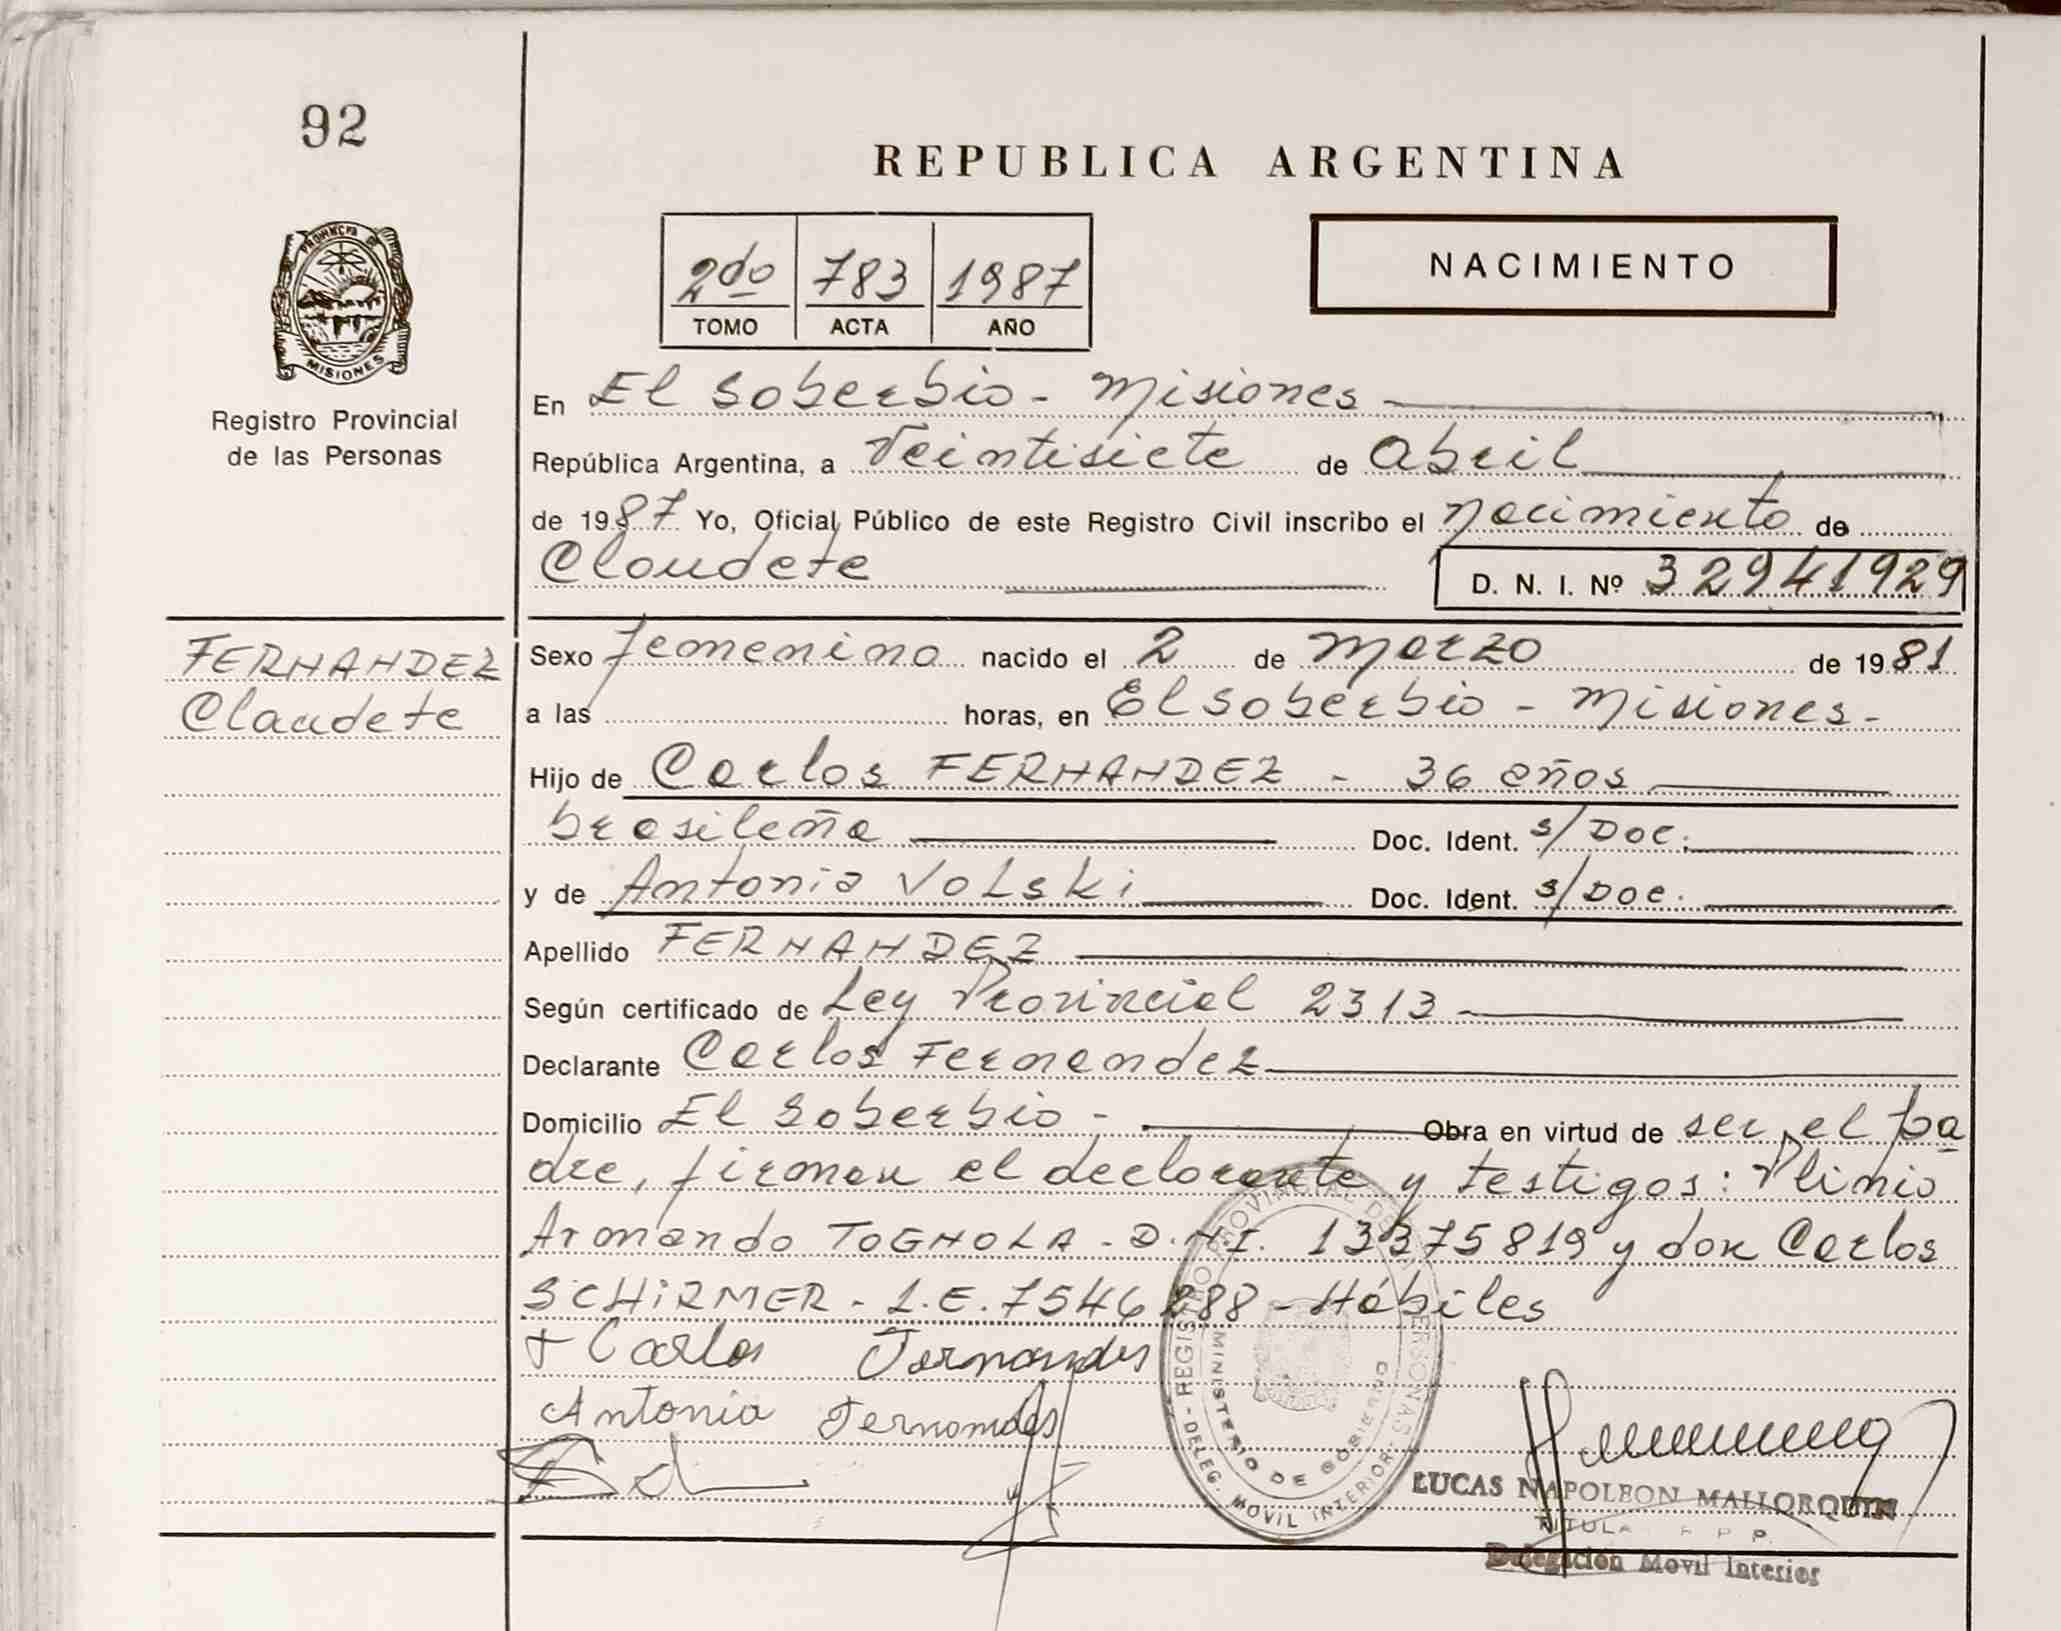 92
REPUBLICA ARGENTINA
2do 783 1987
TOMO ACTA AÑO
NACIMIENTO
PROVINCIA DE MISIONES
Registro Provincial
de las Personas
En El Soberbio - Misiones
República Argentina, a Veintisiete de abril
de 1987 Yo, Oficial Público de este Registro Civil inscribo el nacimiento de
Claudete D. N. I. Nº 32941929
FERNANDEZ
Claudete
Sexo femenino nacido el 2 de marzo de 1981
a las horas, en El Soberbio - Misiones-
Hijo de Carlos FERNANDEZ - 36 años
brasileña Doc. Ident. s/Doc.
y de Antonia VOLSKi Doc. Ident. s/Doc.
Apellido FERNANDEZ
Según certificado de Ley Provincial 2313
Declarante Carlos Fernandez
Domicilio El Soberbio - Obra en virtud de ser el pa
dre, firman el declarante y testigos: Plinio
Armando TOGNOLA - D.N.I. 13375819 y don Carlos
SCHiRMER - L.E. 7546288 - Hábiles
+ Carlos Fernandes
Antonia Fernandes
REGISTRO PROVINCIAL DE LAS PERSONAS - DELEG. MOVIL INTERIOR
MINISTERIO DE GOBIERNO
LUCAS NAPOLEON MALLORQUIN
TITULAR R P P.
Delegación Movil Interior